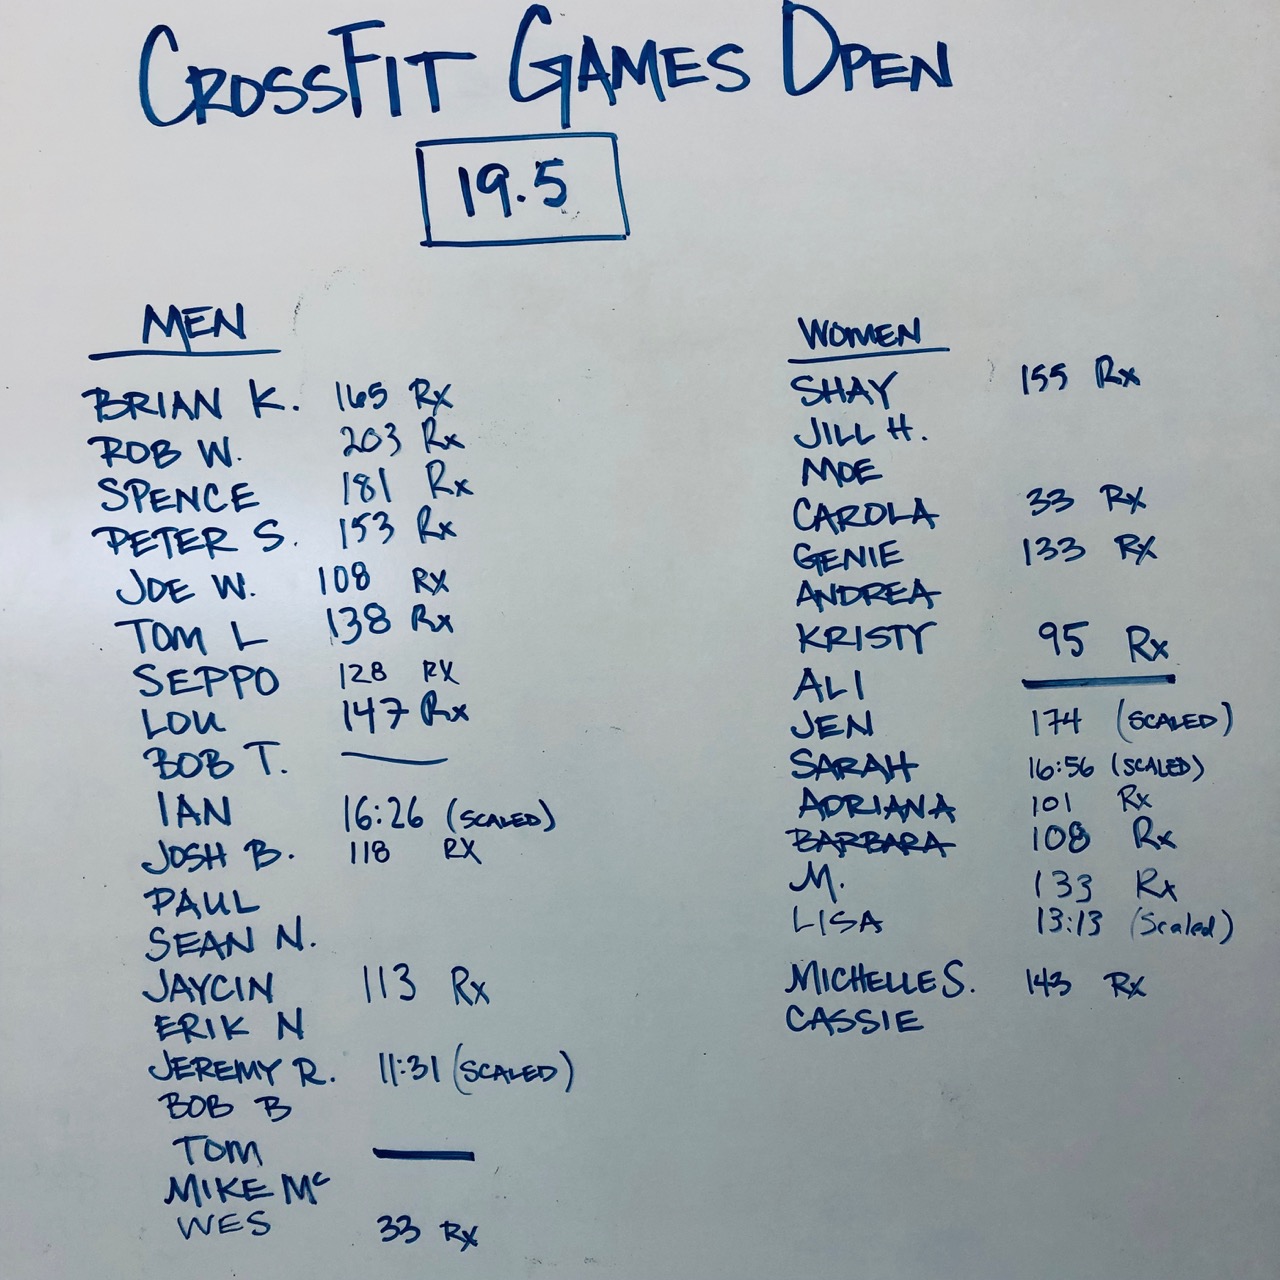 CROSSFIT GAMES OPEN
19.5
MEN
BRIAN K. 165 Rx
ROB W. 203 Rx
SPENCE 181 Rx
PETER S. 153 Rx
JOE W. 108 RX
TOM L 138 Rx
SEPPO 128 RX
LOU 147 Rx
BOB T.
IAN 16:26 (SCALED)
JOSH B. 118 RX
PAUL
SEAN N.
JAYCIN 113 Rx
ERIK N
JEREMY R. 11:31 (SCALED)
BOB B
TOM
MIKE Mc
WES 33 Rx
WOMEN
SHAY 155 Rx
JILL H.
MOE
CAROLA 33 Rx
GENIE 133 Rx
ANDREA
KRISTY 95 Rx
ALI
JEN 174 (SCALED)
SARAH 16:56 (SCALED)
ADRIANA 101 Rx
BARBARA 108 Rx
M. 133 Rx
LISA 13:13 (Scaled)
MICHELLE S. 143 Rx
CASSIE